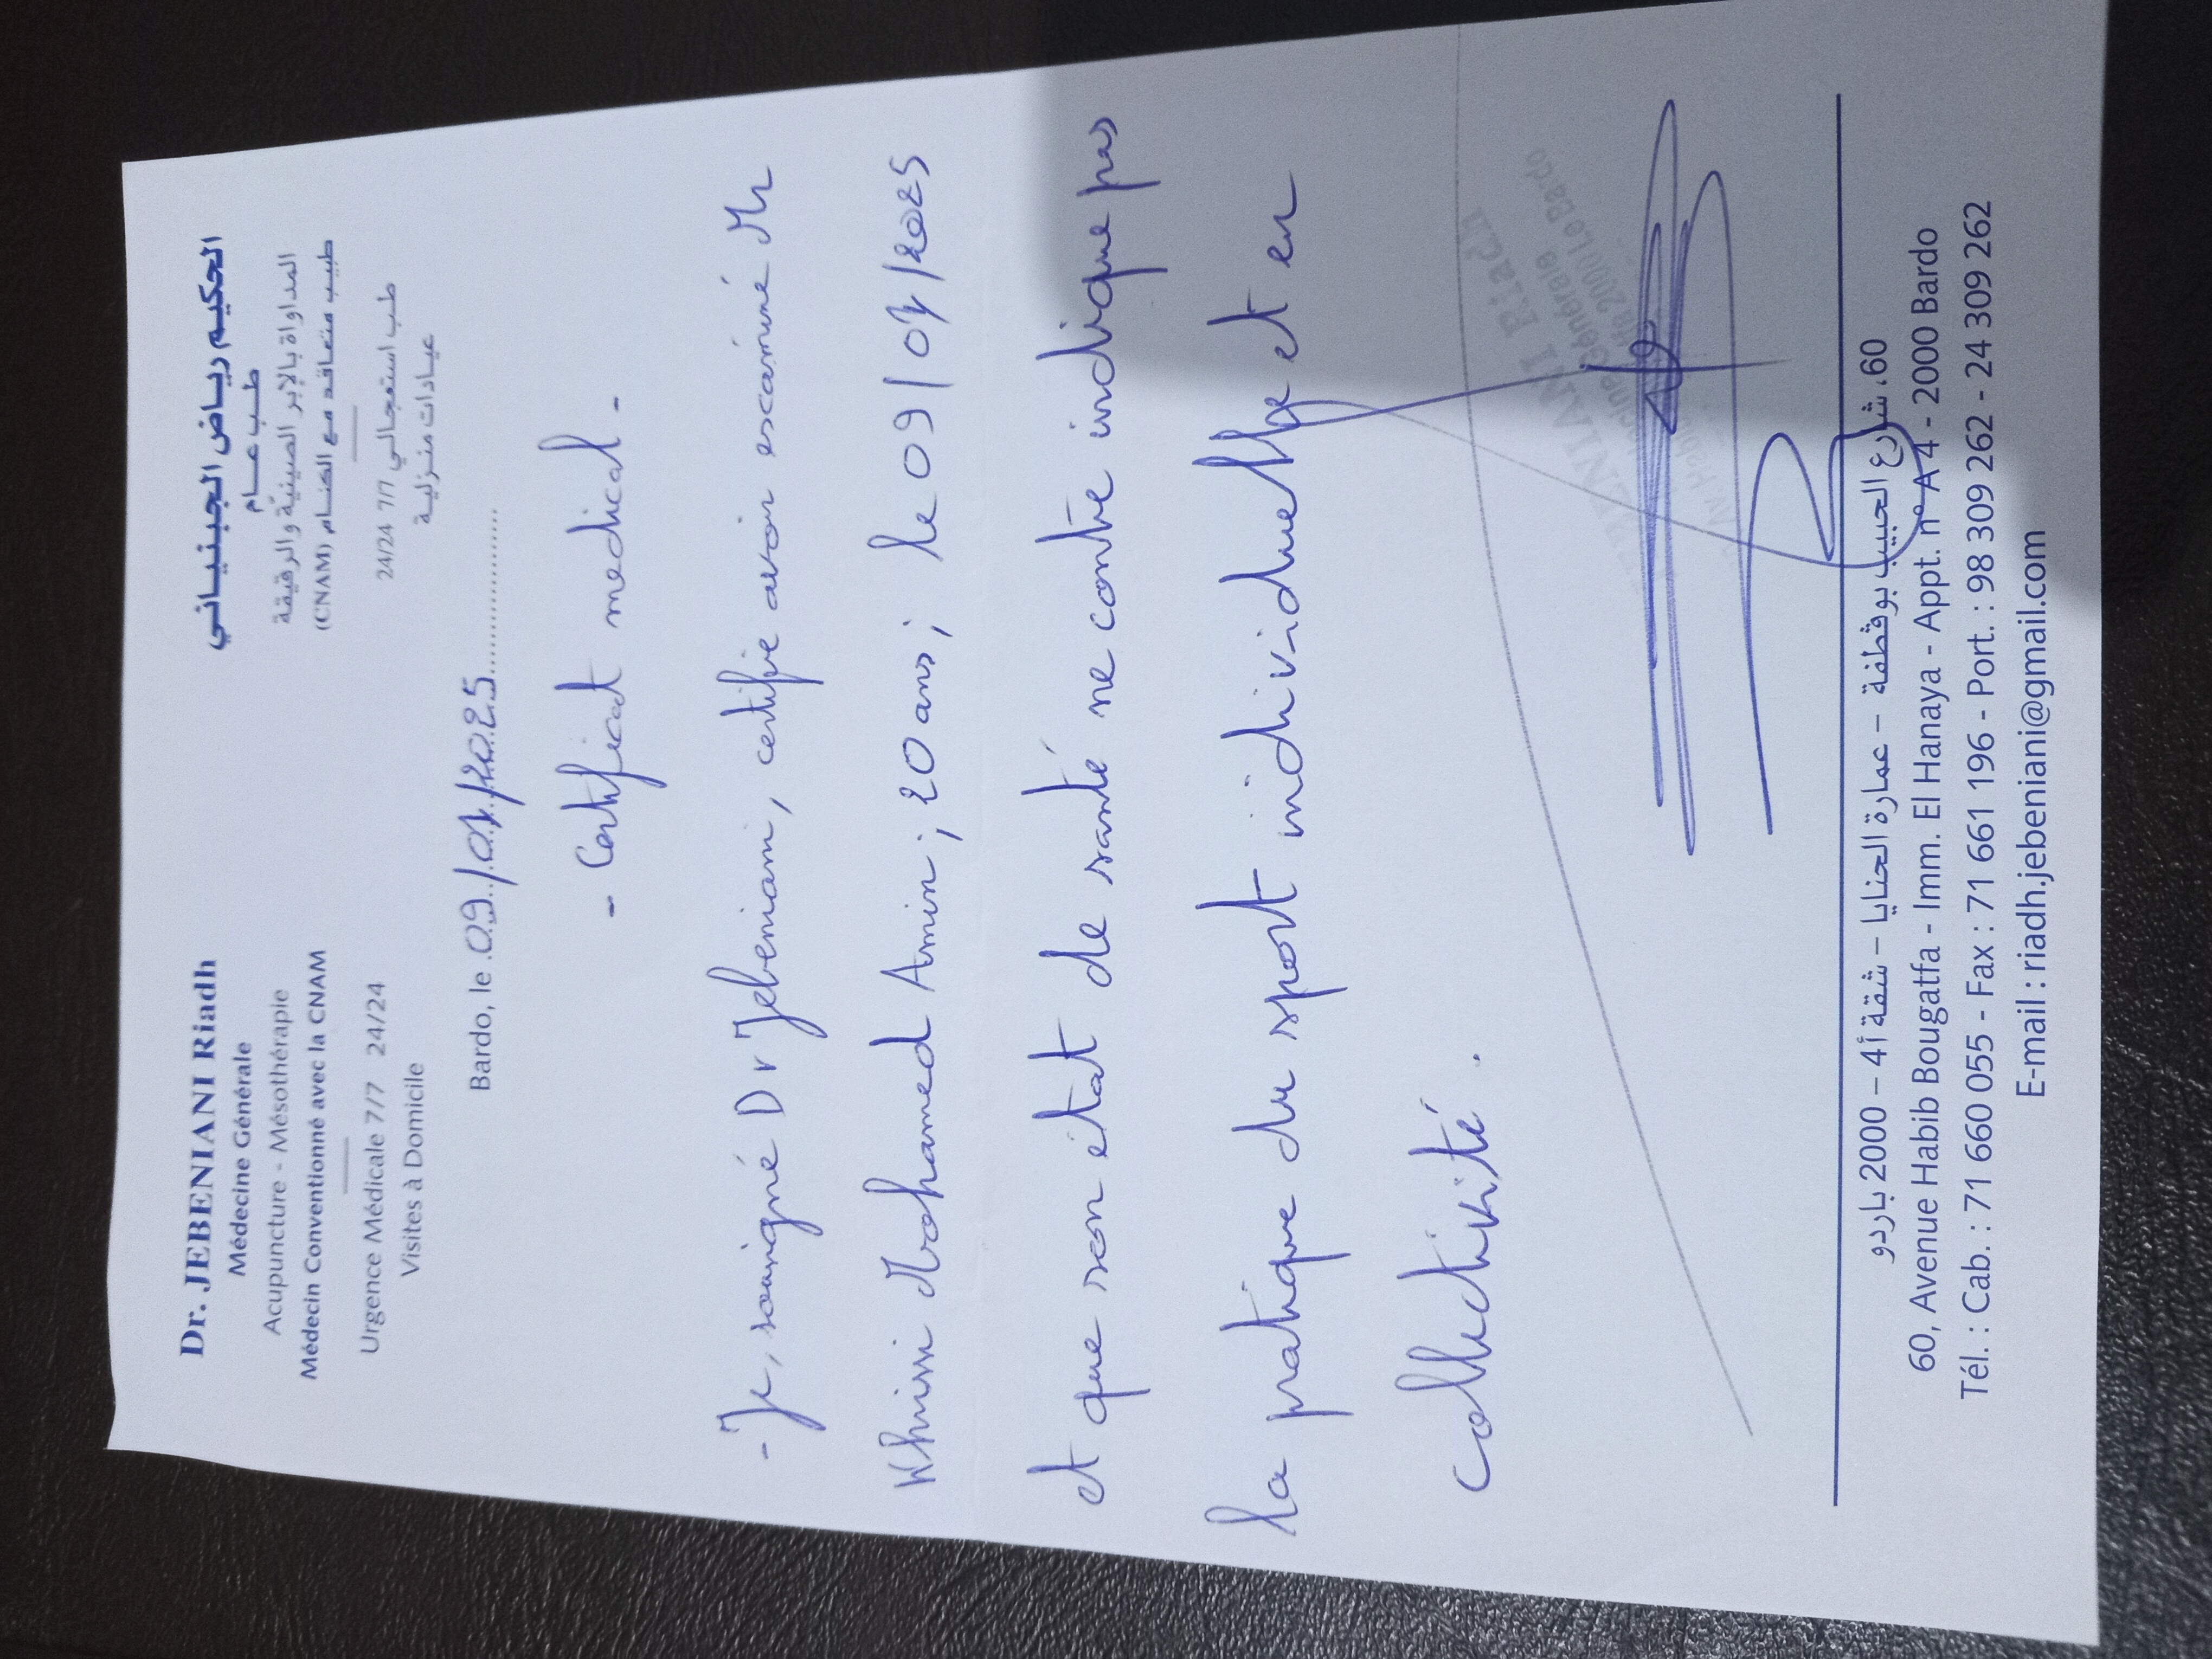 Dr. JEBENIANI Riadh
Médecine Générale
Acupuncture - Mésothérapie
Médecin Conventionné avec la CNAM
Urgence Médicale 7/7 24/24
Visites à Domicile
الحكيم رياض الجبنياني
طب عام
المداواة بالإبر الصينية والرقيقة
طبيب متعاقد مع الكنام (CNAM)
طب استعجالي 7/7 24/24
عيادات منزلية
Bardo, le 09/07/2025
- Certificat medical -
- Je, sousigné Dr Jebeniani, certifie avoir examiné Mr
Mohamed Amin ; 20 ans ; le 09/07/2025
et que son état de santé ne contre indique pas
la pratique du sport individuelle et en
collectivité.
JEBENIANI Riadh
Médecine Générale
60، شارع الحبيب بوقطفة – عمارة الحنايا – شقة أ4 – 2000 باردو
60, Avenue Habib Bougatfa - Imm. El Hanaya - Appt. n° A 4 - 2000 Bardo
Tél. : Cab. : 71 660 055 - Fax : 71 661 196 - Port. : 98 309 262 - 24 309 262
E-mail : riadh.jebeniani@gmail.com